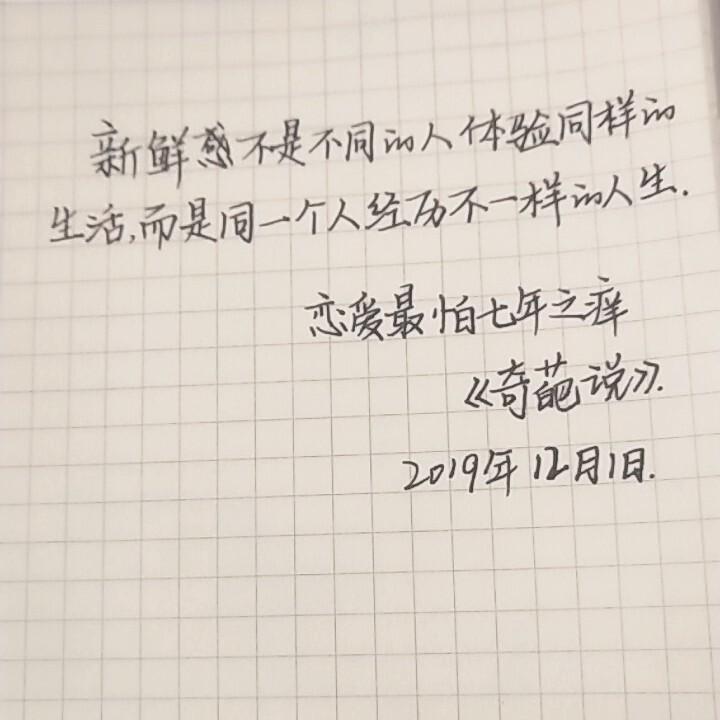 新鲜感不是不同的人体验同样的
生活,而是同一个人经历不一样的人生.
恋爱最怕七年之痒
《奇葩说》.
2019年12月1日.